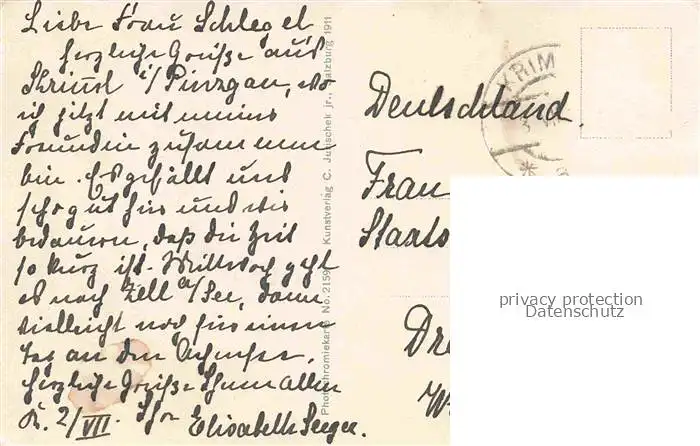 Liebe Frau Schlegel
herzliche Grüße aus
Krimml i/Pinzgau, wo
ich jetzt mit meiner
Freundin zusammen
bin. Es gefällt uns
sehr gut hier und wir
bedauern, daß die Zeit
so kurz ist. Mittwoch geht
es nach Zell a/See, dann
vielleicht noch für einen
Tag an den Achensee.
Herzliche Grüße Ihnen allen
K. 2/VII. Ihre Elisabeth Seeger.
Photochromiekarte No. 2159 Kunstverlag C. Jurischek jr., Salzburg 1911
KRIM
Deutschland.
Frau
Staats
Dre
privacy protection
Datenschutz